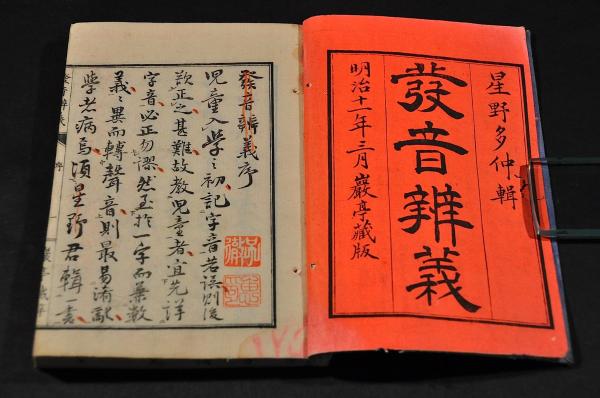 星野多仲輯
發音辨義
明治十一年三月 巖亭藏版
發音辨義序
兒童入學之初記字音若誤則後
欲正之甚難故教兒童者宜先詳
字音必正勿謬然至於一字而兼數
義〻異而轉聲音則最易淆
學者病焉頃星野君輯一書
發音辨義 序